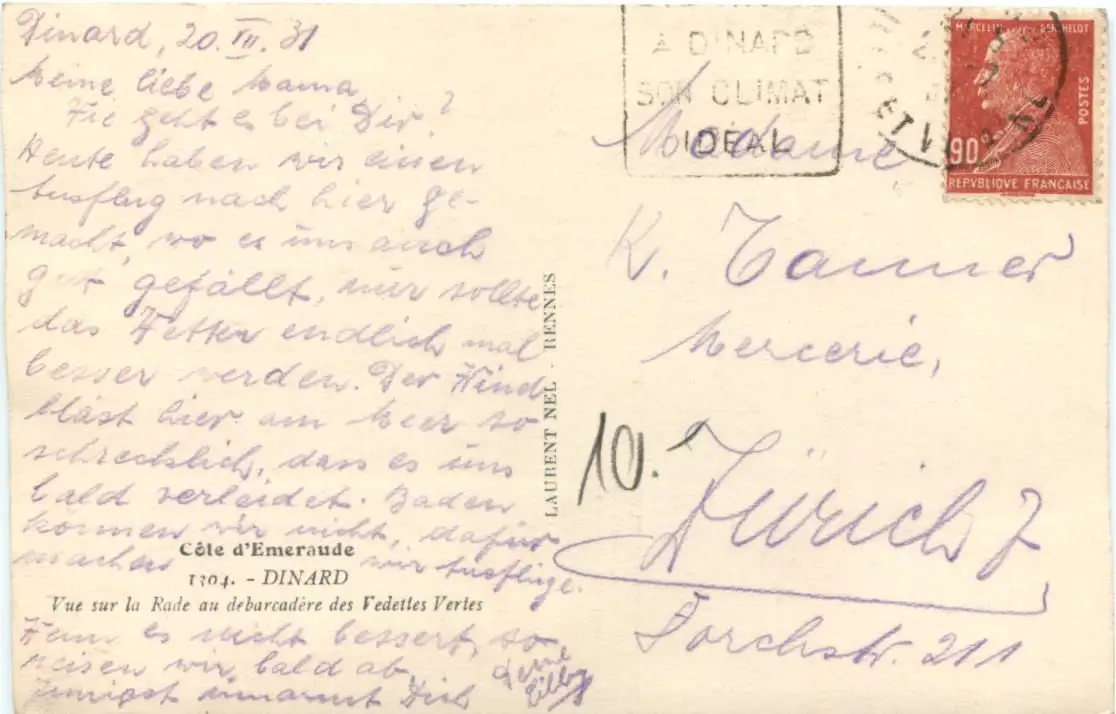 Dinard, 20. VII. 31
Meine liebe Mama
Wie geht es bei Dir?
Heute haben wir einen
Ausflug nach hier ge-
macht, wo es uns auch
gut gefällt, nur sollte
das Wetter endlich mal
besser werden. Der Wind
bläst hier am Meer so
schrecklich, dass es uns
bald verleidet. Baden
können wir nicht, dafür
machen wir Ausflüge.
Côte d'Emeraude
1304. - DINARD
Vue sur la Rade au debarcadère des Vedettes Vertes
Wenn es nicht bessert, so
reisen wir bald ab.
Innigst umarmt Dich
Deine
LAURENT NEL - RENNES
A DINARD
SON CLIMAT
IDEAL
MARCELIN BERTHELOT
POSTES
90
REPVBLIQUE FRANÇAISE
ET V
Madame
K. Tanner
Mercerie,
10.
Zürich 7
Forchstr. 211